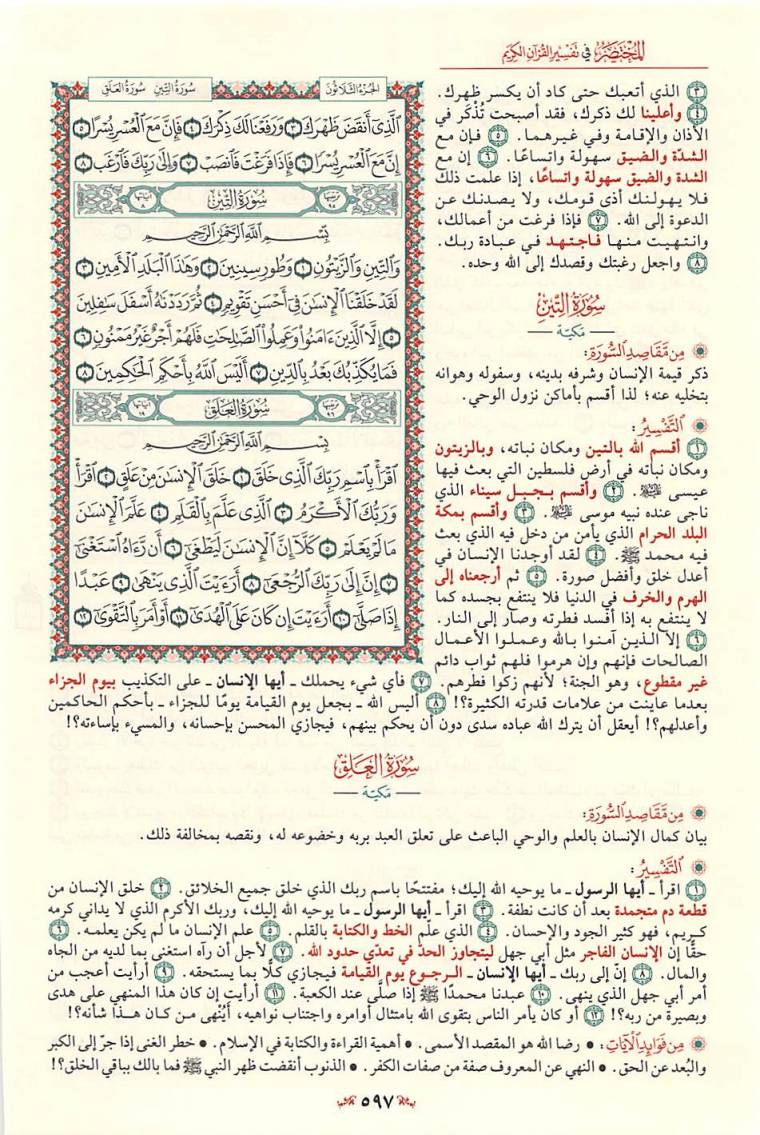 المختصر في تفسير القرآن الكريم
الجزء الثلاثون
سورة التين سورة العلق
ٱلَّذِىٓ أَنقَضَ ظَهْرَكَ ٣ وَرَفَعْنَا لَكَ ذِكْرَكَ ٤ فَإِنَّ مَعَ ٱلْعُسْرِ يُسْرًا ٥
إِنَّ مَعَ ٱلْعُسْرِ يُسْرًا ٦ فَإِذَا فَرَغْتَ فَٱنصَبْ ٧ وَإِلَىٰ رَبِّكَ فَٱرْغَب ٨
ترتيبها ٩٥ سُورَةُ التِّينِ آياتها ٨
بِسْمِ ٱللَّهِ ٱلرَّحْمَٰنِ ٱلرَّحِيمِ
وَٱلتِّينِ وَٱلزَّيْتُونِ ١ وَطُورِ سِينِينَ ٢ وَهَٰذَا ٱلْبَلَدِ ٱلْأَمِينِ ٣
لَقَدْ خَلَقْنَا ٱلْإِنسَٰنَ فِىٓ أَحْسَنِ تَقْوِيمٍ ٤ ثُمَّ رَدَدْنَٰهُ أَسْفَلَ سَٰفِلِينَ
٥ إِلَّا ٱلَّذِينَ ءَامَنُوا۟ وَعَمِلُوا۟ ٱلصَّٰلِحَٰتِ فَلَهُمْ أَجْرٌ غَيْرُ مَمْنُونٍ ٦
فَمَا يُكَذِّبُكَ بَعْدُ بِٱلدِّينِ ٧ أَلَيْسَ ٱللَّهُ بِأَحْكَمِ ٱلْحَٰكِمِينَ ٨
ترتيبها ٩٦ سُورَةُ العَلَقِ آياتها ١٩
بِسْمِ ٱللَّهِ ٱلرَّحْمَٰنِ ٱلرَّحِيمِ
ٱقْرَأْ بِٱسْمِ رَبِّكَ ٱلَّذِى خَلَقَ ١ خَلَقَ ٱلْإِنسَٰنَ مِنْ عَلَقٍ ٢ ٱقْرَأْ
وَرَبُّكَ ٱلْأَكْرَمُ ٣ ٱلَّذِى عَلَّمَ بِٱلْقَلَمِ ٤ عَلَّمَ ٱلْإِنسَٰنَ
مَا لَمْ يَعْلَمْ ٥ كَلَّآ إِنَّ ٱلْإِنسَٰنَ لَيَطْغَىٰٓ ٦ أَن رَّءَاهُ ٱسْتَغْنَىٰٓ
٧ إِنَّ إِلَىٰ رَبِّكَ ٱلرُّجْعَىٰٓ ٨ أَرَءَيْتَ ٱلَّذِى يَنْهَىٰ ٩ عَبْدًا
إِذَا صَلَّىٰٓ ١٠ أَرَءَيْتَ إِن كَانَ عَلَى ٱلْهُدَىٰٓ ١١ أَوْ أَمَرَ بِٱلتَّقْوَىٰٓ ١٢
٣ الذي أتعبك حتى كاد أن يكسر ظهرك.
٤ وأعلينا لك ذكرك، فقد أصبحت تُذْكَر في
الأذان والإقامة وفي غيرهما. ٥ فإن مع
الشدّة والضيق سهولة واتساعًا. ٦ إن مع
الشدة والضيق سهولة واتساعًا، إذا علمت ذلك
فلا يهولنك أذى قومك، ولا يصدنك عن
الدعوة إلى الله. ٧ فإذا فرغت من أعمالك،
وانتهيت منها فاجتهد في عبادة ربك.
٨ واجعل رغبتك وقصدك إلى الله وحده.
سُورَةُ التِّينِ
مَكيّة
مِن مَّقَاصِدِ السُّورَةِ:
ذكر قيمة الإنسان وشرفه بدينه، وسفوله وهوانه
بتخليه عنه؛ لذا أقسم بأماكن نزول الوحي.
التَّفْسِيرُ:
١ أقسم الله بالتين ومكان نباته، وبالزيتون
ومكان نباته في أرض فلسطين التي بعث فيها
عيسى عليه السلام. ٢ وأقسم بجبل سيناء الذي
ناجى عنده نبيه موسى عليه السلام. ٣ وأقسم بمكة
البلد الحرام الذي يأمن من دخل فيه الذي بعث
فيه محمد ﷺ. ٤ لقد أوجدنا الإنسان في
أعدل خلق وأفضل صورة. ٥ ثم أرجعناه إلى
الهرم والخرف في الدنيا فلا ينتفع بجسده كما
لا ينتفع به إذا أفسد فطرته وصار إلى النار.
٦ إلا الذين آمنوا بالله وعملوا الأعمال
الصالحات فإنهم وإن هرموا فلهم ثواب دائم
غير مقطوع، وهو الجنة؛ لأنهم زكوا فطرهم. ٧ فأي شيء يحملك ـ أيها الإنسان ـ على التكذيب بيوم الجزاء
بعدما عاينت من علامات قدرته الكثيرة؟! ٨ أليس الله ـ بجعل يوم القيامة يومًا للجزاء ـ بأحكم الحاكمين
وأعدلهم؟! أيعقل أن يترك الله عباده سدى دون أن يحكم بينهم، فيجازي المحسن بإحسانه، والمسيء بإساءته؟!
سُورَةُ العَلَقِ
مَكيّة
مِن مَّقَاصِدِ السُّورَةِ:
بيان كمال الإنسان بالعلم والوحي الباعث على تعلق العبد بربه وخضوعه له، ونقصه بمخالفة ذلك.
التَّفْسِيرُ:
١ اقرأ ـ أيها الرسول ـ ما يوحيه الله إليك؛ مفتتحًا باسم ربك الذي خلق جميع الخلائق. ٢ خلق الإنسان من
قطعة دم متجمدة بعد أن كانت نطفة. ٣ اقرأ ـ أيها الرسول ـ ما يوحيه الله إليك، وربك الأكرم الذي لا يداني كرمه
كريم، فهو كثير الجود والإحسان. ٤ الذي علّم الخط والكتابة بالقلم. ٥ علم الإنسان ما لم يكن يعلمه. ٦
حقًّا إن الإنسان الفاجر مثل أبي جهل ليتجاوز الحدّ في تعدّي حدود الله. ٧ لأجل أن رآه استغنى بما لديه من الجاه
والمال. ٨ إنّ إلى ربك ـ أيها الإنسان ـ الرجوع يوم القيامة فيجازي كلًّا بما يستحقه. ٩ أرأيت أعجب من
أمر أبي جهل الذي ينهى. ١٠ عبدنا محمدًا ﷺ إذا صلّى عند الكعبة. ١١ أرأيت إن كان هذا المنهي على هدى
وبصيرة من ربه؟! ١٢ أو كان يأمر الناس بتقوى الله بامتثال أوامره واجتناب نواهيه، أيُنْهى من كان هذا شأنه؟!
مِن فَوَائِدِ الآيَاتِ: • رضا الله هو المقصد الأسمى. • أهمية القراءة والكتابة في الإسلام. • خطر الغنى إذا جرّ إلى الكبر
والبُعد عن الحق. • النهي عن المعروف صفة من صفات الكفر. • الذنوب أنقضت ظهر النبي ﷺ فما بالك بباقي الخلق؟!
٥٩٧